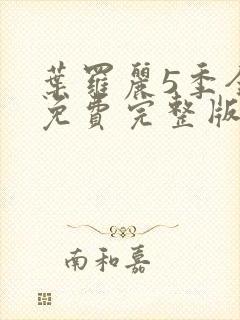 葉羅麗5季全
免費完整版
南和嘉